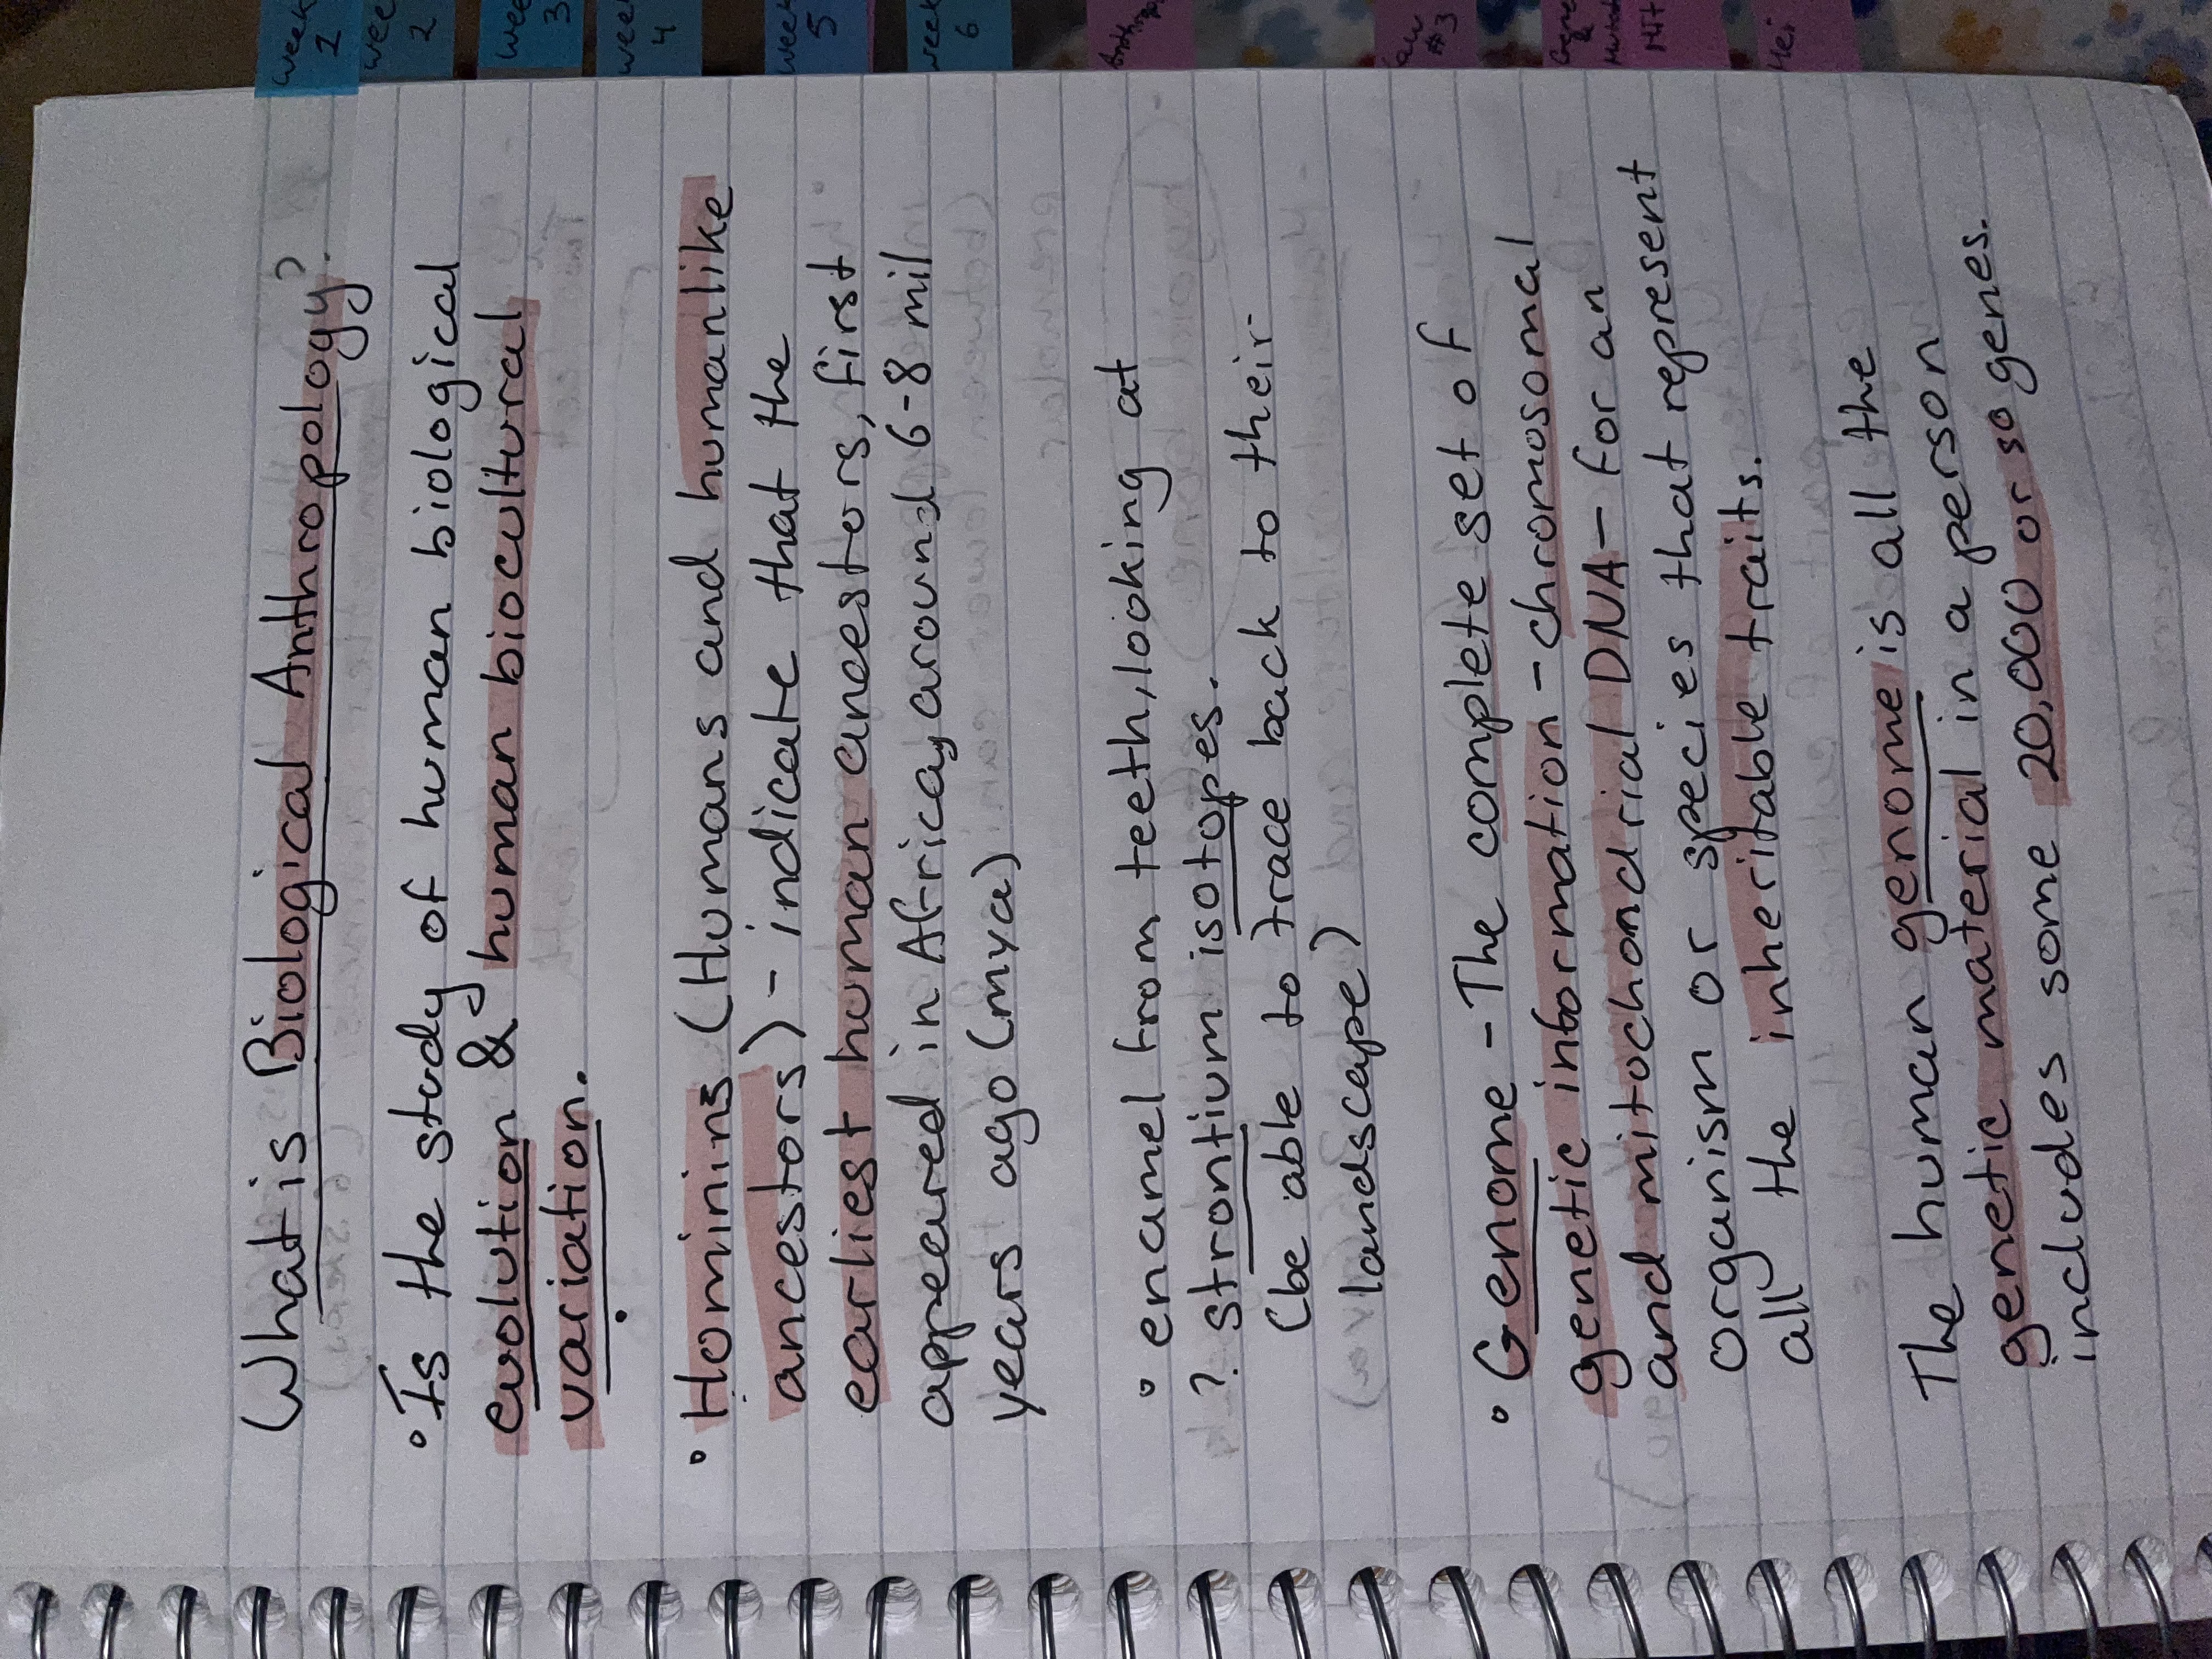 What is Biological Anthropology?
• Is the study of human biological
evolution & human biocultural
variation.
• Hominins (Humans and humanlike
ancestors) - indicate that the
earliest human ancestors, first
appeared in Africa, around 6-8 mil
years ago (mya)
• enamel from teeth, looking at
? strontium isotopes.
(be able to trace back to their
landscape)
• Genome - The complete set of
genetic information - chromosomal
and mitochondrial DNA - for an
organism or species that represent
all the inheritable traits.
The human genome is all the
genetic material in a person
includes some 20,000 or so genes.
week
1
wee
2
wee
3
week
4
week
5
week
6
#3
&